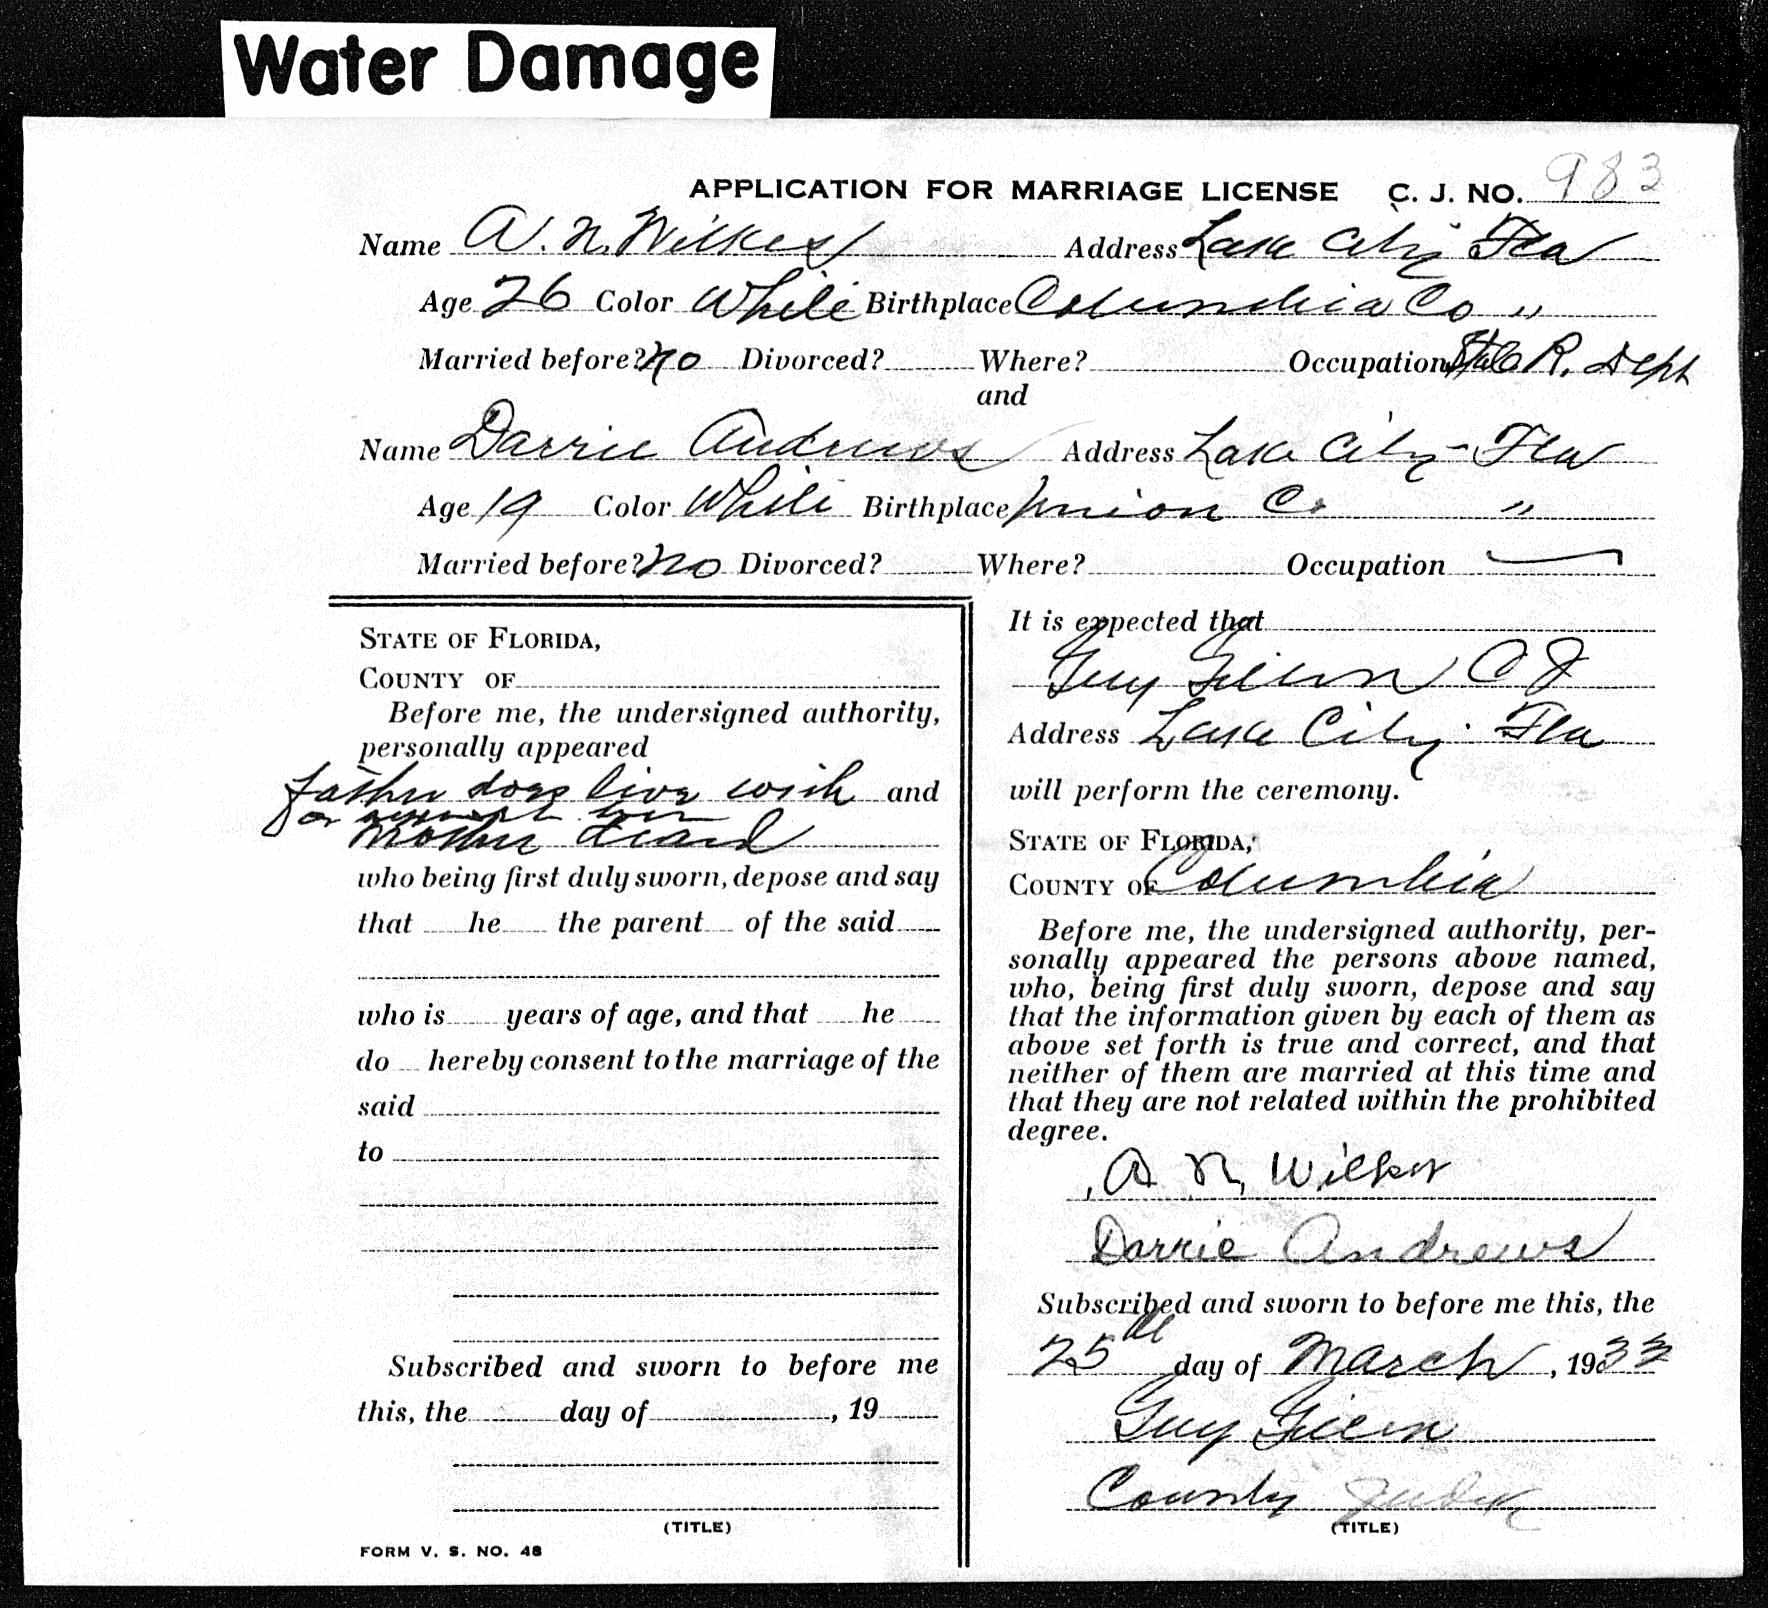 Water Damage
APPLICATION FOR MARRIAGE LICENSE C. J. NO. 983
Name A. N. Wilkes Address Lake City Fla
Age 26 Color White Birthplace Columbia Co "
Married before? no Divorced? Where? Occupation R. Dept
and
Name Darrie Andrews Address Lake City - Fla
Age 19 Color White Birthplace Union Co "
Married before? no Divorced? Where? Occupation —
STATE OF FLORIDA,
COUNTY OF
Before me, the undersigned authority,
personally appeared
father does live with and
or support her
mother dead
who being first duly sworn, depose and say
that he the parent of the said
who is years of age, and that he
do hereby consent to the marriage of the
said
to
Subscribed and sworn to before me
this, the day of , 19
(TITLE)
FORM V. S. NO. 48
It is expected that
Guy Gillen C J
Address Lake City. Fla
will perform the ceremony.
STATE OF FLORIDA,
COUNTY OF Columbia
Before me, the undersigned authority, per-
sonally appeared the persons above named,
who, being first duly sworn, depose and say
that the information given by each of them as
above set forth is true and correct, and that
neither of them are married at this time and
that they are not related within the prohibited
degree.
A N, Wilkes
Darrie Andrews
Subscribed and sworn to before me this, the
25th day of March, 1933
Guy Gillen
County Judge
(TITLE)